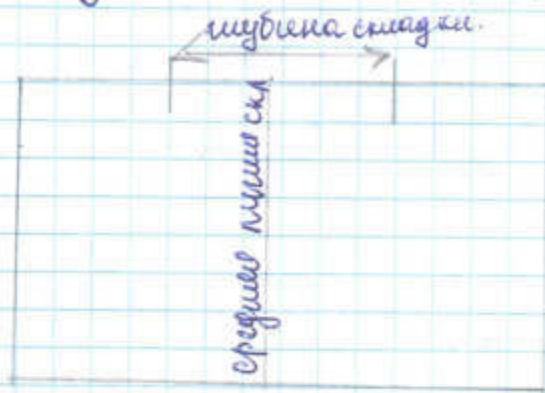 глубина складки.
средняя линия скл